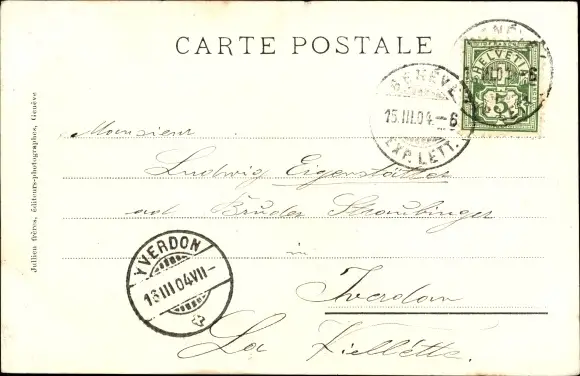 CARTE POSTALE
HELVETIA
5
GENÈVE
15.III.04.–6
EXP. LETT.
Monsieur
Ludwig Eigenstätter
ad Bruder Straubinger
in
Yverdon
La
YVERDON
16 III 04 VII–
Jullien frères, éditeurs-photographes, Genève